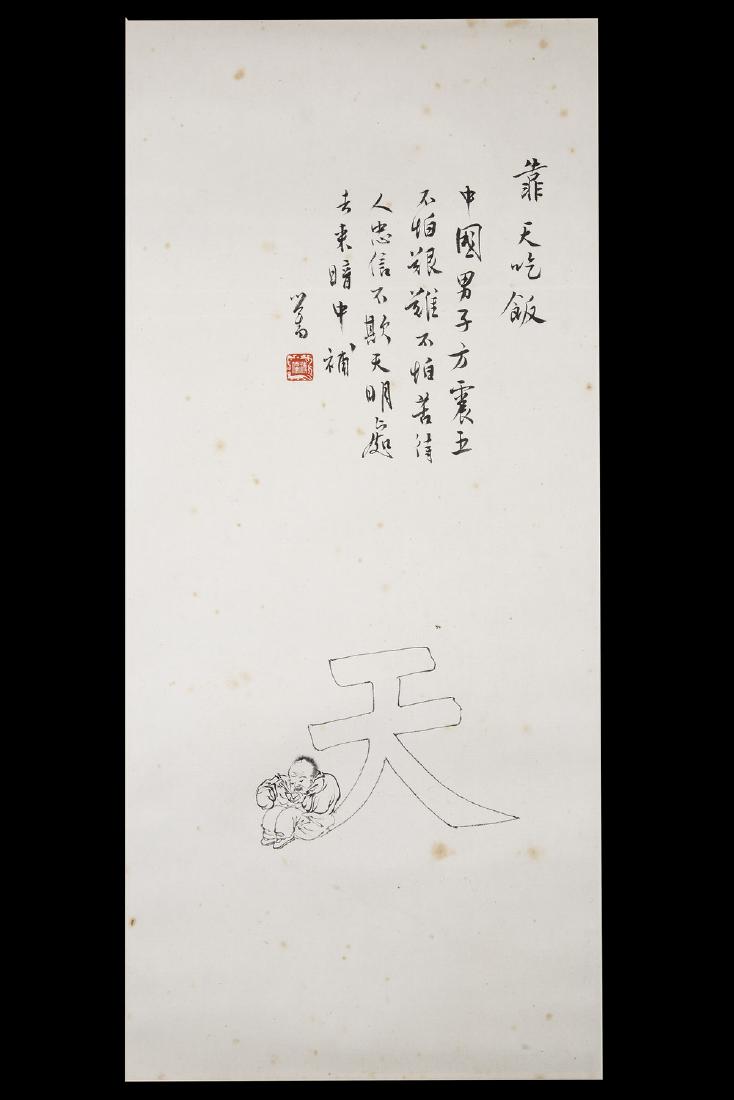 靠天吃飯
中國男子方震五
不怕艱難不怕苦待
人忠信不欺天明處
去來暗中補
心畬
天